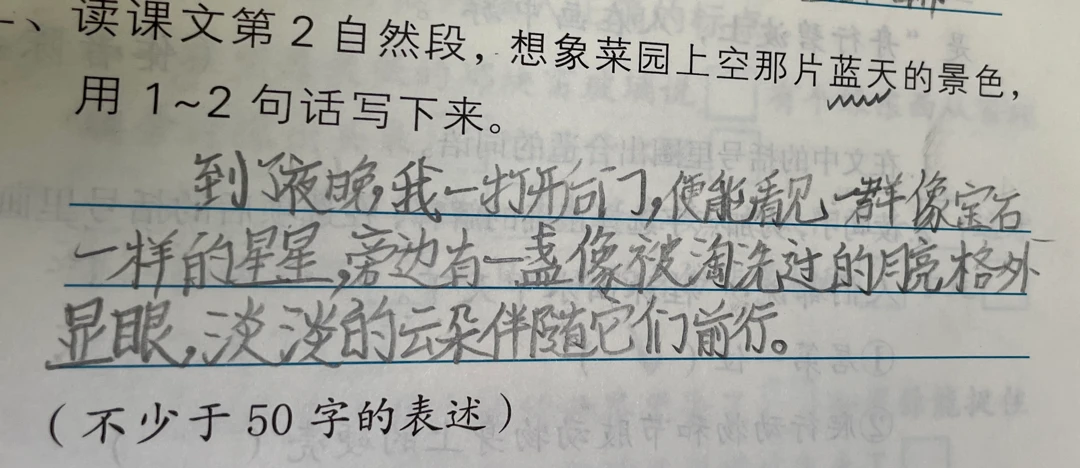 一、读课文第2自然段，想象菜园上空那片蓝天的景色，
用1~2句话写下来。
到了夜晚，我一打开后门，便能看见一群像宝石
一样的星星，旁边有一盏像被淘洗过的月亮格外
显眼，淡淡的云朵伴随它们前行。
（不少于50字的表述）